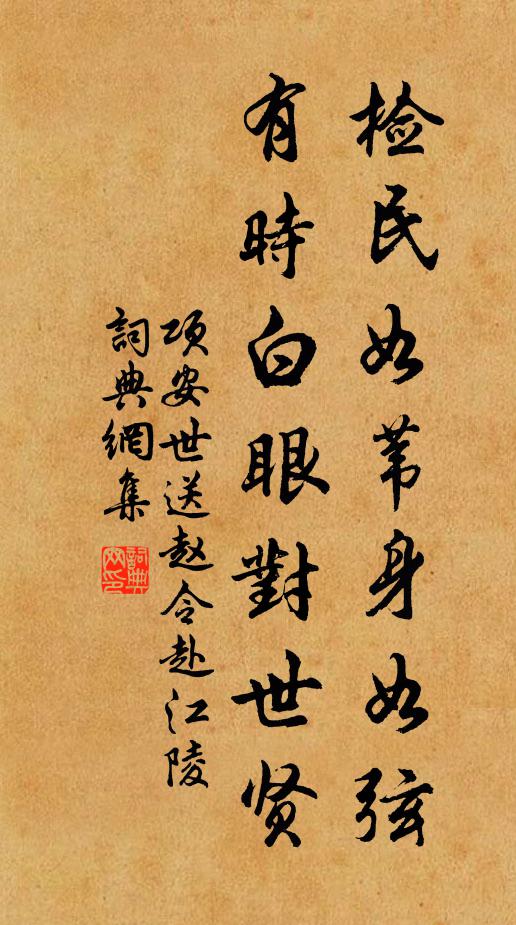 检民如苇身如弦
有時白眼對世贤
项安世送赵令赴江陵
詞典網集
詞典网印